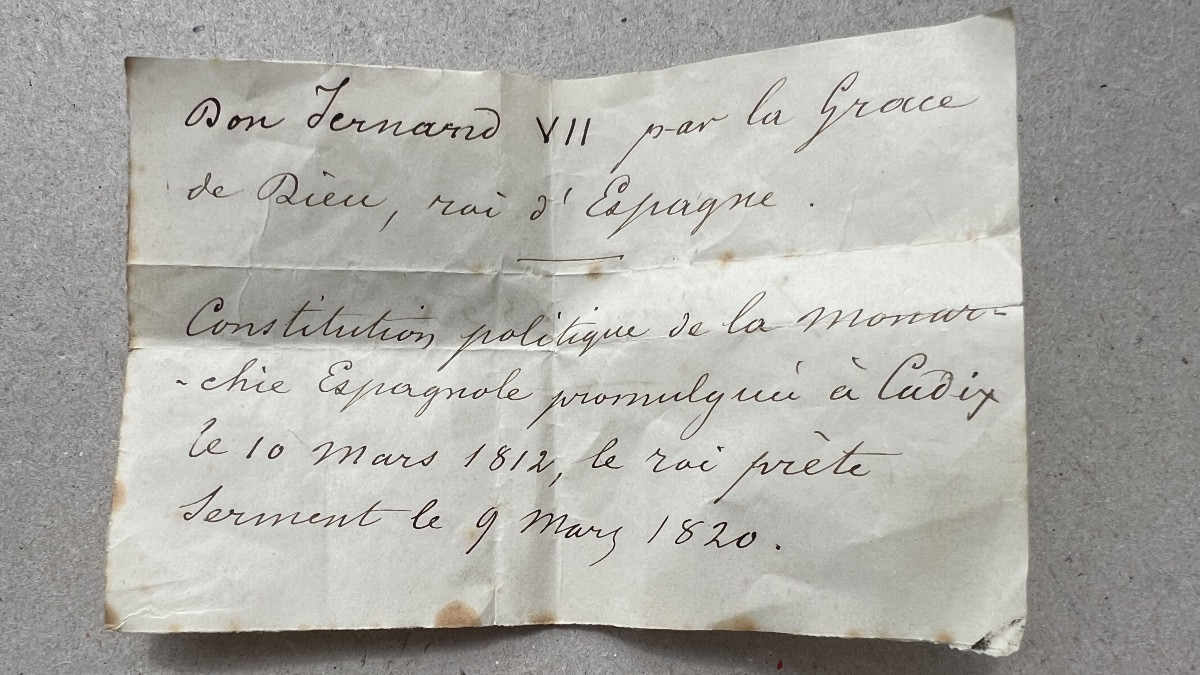 Don Fernand VII par la Grace
de Dieu, roi d'Espagne.
Constitution politique de la monar-
-chie Espagnole promulguée à Cadix
le 10 mars 1812, le roi prète
Serment le 9 Mars 1820.